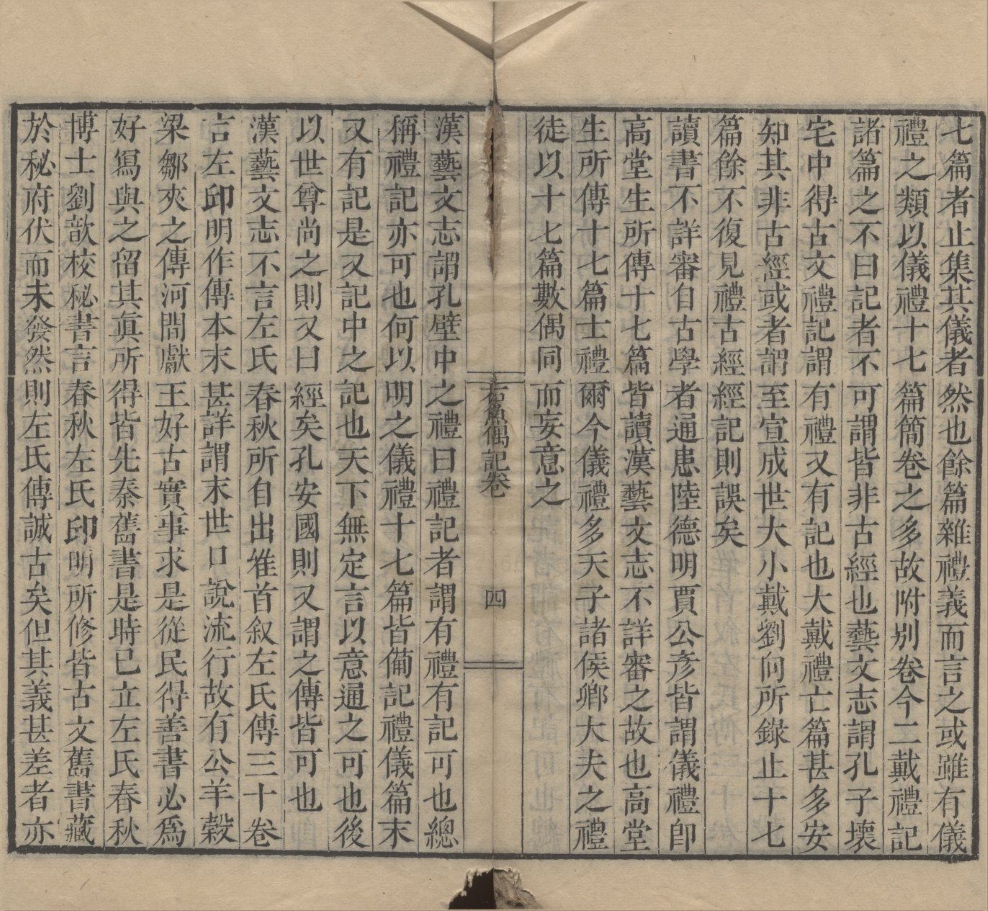 七篇者止集其儀者然也餘篇雜禮義而言之或雖有儀
禮之類以儀禮十七篇簡卷之多故附别卷今二戴禮記
諸篇之不曰記者不可謂皆非古經也藝文志謂孔子壞
宅中得古文禮記謂有禮又有記也大戴禮亡篇甚多安
知其非古經或者謂至宣成世大小戴劉向所錄止十七
篇餘不復見禮古經經記則誤矣
讀書不詳審自古學者通患陸德明賈公彥皆謂儀禮卽
高堂生所傳十七篇皆讀漢藝文志不詳審之故也高堂
生所傳十七篇士禮爾今儀禮多天子諸侯鄉大夫之禮
徒以十七篇數偶同而妄意之
卷
四
漢藝文志謂孔壁中之禮曰禮記者謂有禮有記可也總
稱禮記亦可也何以明之儀禮十七篇皆僃記禮儀篇末
又有記是又記中之記也天下無定言以意通之可也後
以世尊尚之則又曰經矣孔安國則又謂之傳皆可也
漢藝文志不言左氏春秋所自出雒首叙左氏傳三十卷
言左邱明作傳本末甚詳謂末世口說流行故有公羊穀
梁鄒夾之傳河間獻王好古實事求是從民得善書必爲
好寫與之留其眞所得皆先秦舊書是時已立左氏春秋
博士劉歆校秘書言春秋左氏邱明所修皆古文舊書藏
於秘府伏而未發然則左氏傳誠古矣但其義甚差者亦